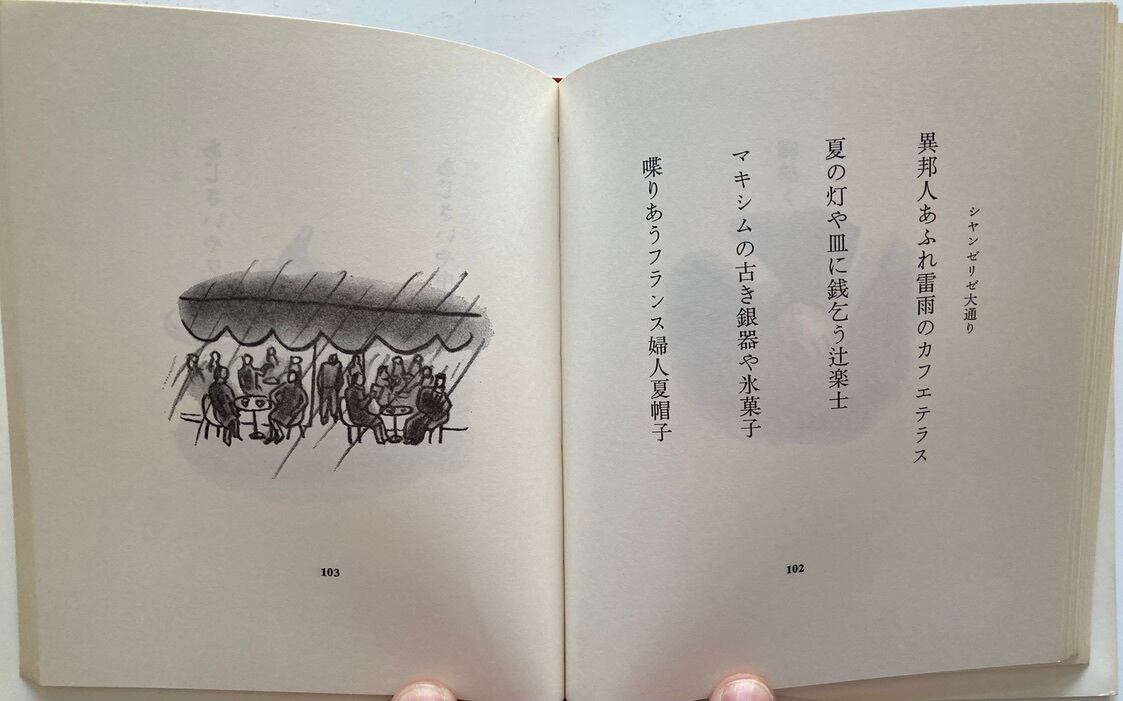 シヤンゼリゼ大通り
異邦人あふれ雷雨のカフエテラス
夏の灯や皿に銭乞う辻楽士
マキシムの古き銀器や氷菓子
喋りあうフランス婦人夏帽子
102
103